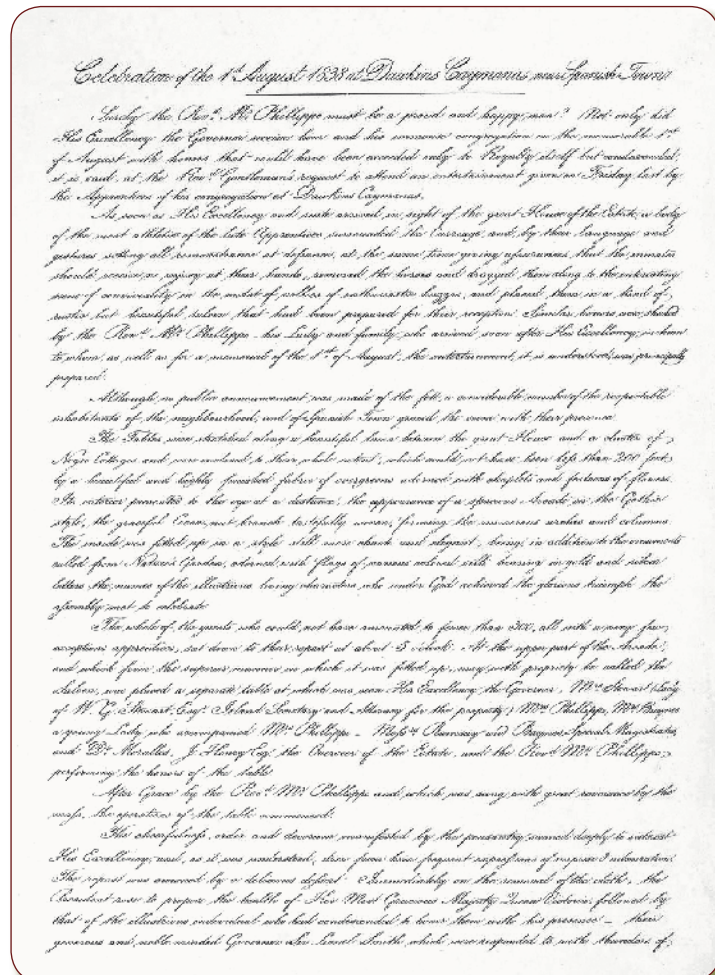 Celebration of the 1st August 1838 at Dawkins Caymanas, near Spanish Town
Surely the Revd. Mr. Phillippo must be a proud and happy man! Not only did
His Excellency the Governor receive him and his immense congregation on the memorable 1st
of August with honors that could have been exceeded only to Royalty itself but condescended,
it is said, at the Revd. Gentleman's request to attend an entertainment given on Friday last by
the Apprentices of his congregation at Dawkins Caymanas.
As soon as His Excellency and suite arrived in sight of the great House of the Estate, a body
of the most athletic of the late Apprentices surrounded the Carriage, and, by their language and
gestures setting all remonstrance at defiance, at the same time giving assurances that the inmates
should receive no injury at their hands, removed the horses and dragged them along to the interesting
scene of conviviality in the midst of vollies of enthusiastic huzzas, and placed them in a kind of
rustic but beautiful saloon that had been prepared for their reception. Similar honors were shewed
by the Revd. Mr. Phillippo his Lady and family, who arrived soon after His Excellency, in honor
to whom, as well as for a memorial of the 1st of August, the entertainment, it is understood, was principally
prepared.
Although no public announcement was made of the fete, a considerable number of the respectable
inhabitants of the neighbourhood, and of Spanish Town graced the scene with their presence.
The Tables were sketched along a beautiful lawn between the great House and a cluster of
Negro Cottages and were enclosed, to their whole extent, which could not have been less than 200 feet,
by a beautiful and highly finished fabric of evergreens adorned with chaplets and festoons of flowers.
Its exterior presented to the eye at a distance, the appearance of a spacious Arcade in the Gothic
style, the graceful Cocoa nut branch tastefully woven, forming the numerous arches and columns.
The inside was fitted up in a style still more chaste and elegant, being, in addition to the ornaments
culled from Nature's Garden, adorned with flags of various colored silk bearing in gold and silver
letters the names of the illustrious living characters who under God achieved the glorious triumph the
assembly met to celebrate.
The whole of the guests who could not have amounted to fewer than 300, all with a very few
exceptions apprentices, sat down to their repast at about 3 o'clock. At the upper part of the Arcade,
and which from the superior manner in which it was fitted up, may with propriety be called the
Saloon, was placed a separate table at which was seen His Excellency the Governor, Mrs. Stewart (Lady
of W. G. Stewart, Esqr. Island Secretary and Attorney for the property) Mrs. Phillippo, Mrs.
a young Lady who accompanied Mrs. Phillippo - Messrs. Ramsay and Special Magistrates,
and Dr. Morales, J. Esq. the Overseer of the Estate, and the Revd. Mr. Phillippo,
performing the honors of the table.
After Grace by the Revd. Mr. Phillippo and which was sung with great reverence by the
mass, the operations of the table commenced.
The cheerfulness, order and decorum manifested by the peasantry, seemed deeply to interest
His Excellency, and, as it was understood, drew from him frequent expressions of surprise & admiration.
The repast was crowned by a delicious dessert. Immediately on the removal of the cloth, the
President rose to propose the health of Her Most Gracious Majesty Queen Victoria followed by
that of the illustrious individual who had condescended to honor them with his presence - their
generous and noble minded Governor Sir Lionel Smith, which were responded to with thunders of